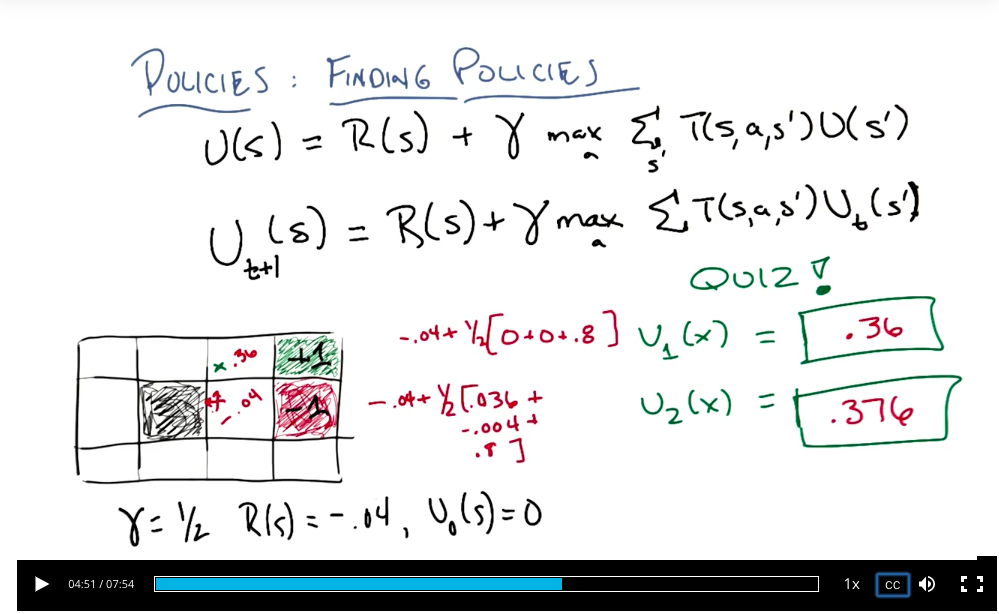 POLICIES: FINDING POLICIES
U(s) = R(s) + γ max_a Σ_s' T(s,a,s')U(s')
U_t+1(s) = R(s) + γ max_a Σ T(s,a,s')U_t(s')
QUIZ!
-.04 + 1/2[0+0+.8] U_1(x) = .36
-.04 + 1/2[.036 + U_2(x) = .376
-.004 +
.8]
x .36 +1
-.04 -1
γ = 1/2 R(s) = -.04, U_0(s) = 0
04:51 / 07:54 1x CC